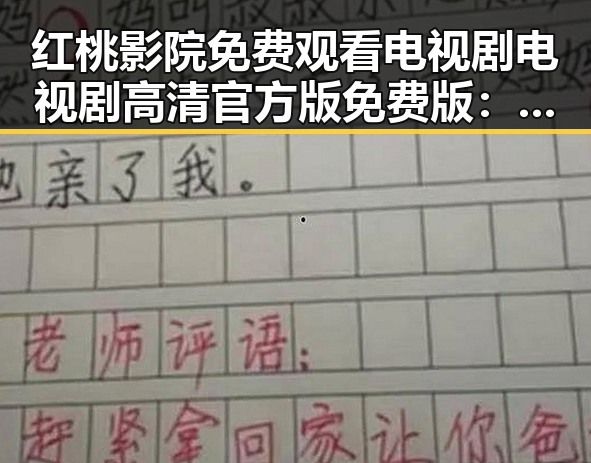 妈叫叔叔亲
红桃影院免费观看电视剧电
视剧高清官方版免费版：...
他亲了我。
老师评语：
赶紧拿回家让你爸